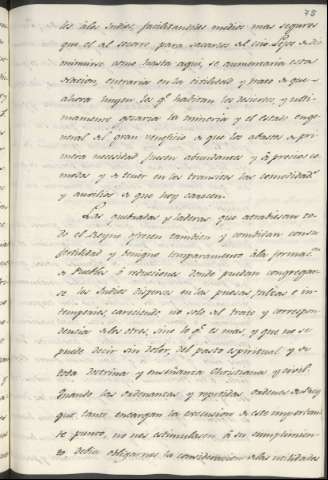 78
les álos Indios, facilitanseles medios mas seguros
que el al socorro, para sacarlos del ocio. Lejos de dis-
minuirse como hasta aqui, se aumentaria esta
Nacion, entraria en la civilidad y trato de que
ahora huyen los q.e habitan los desiertos, y ulti-
mamente gozaria la mineria y el estado en ge-
neral del gran veneficio de que los abastos de pri-
mera necesidad fuesen abundantes y à precios co-
modos, y de tener en los transitos las comodidad.s
y auxilios de que hoy carecen.
Las quebradas y laderas que atrabiesan to-
do el Reyno ofrecen tambien y combidan con su
fertilidad y benigno temperamento àla formac.on
de Pueblos ó reducciones donde puedan congregar-
se los Indios dispersos en las punas, frias e in-
temperies, careciendo no solo del trato y correspon-
dencia delos otros, sino lo q.e es mas, y que no se
puede decir sin dolor, del pasto espiritual, y de
toda doctrina y enseñanza Christiana y civil.
Quando las ordenanzas y repetidas ordenes
que tanto encargan la execusion de este important-
te punto, no nos estimulasen à su cumplimien-
to debia obligarnos la consideracion delas utilidades